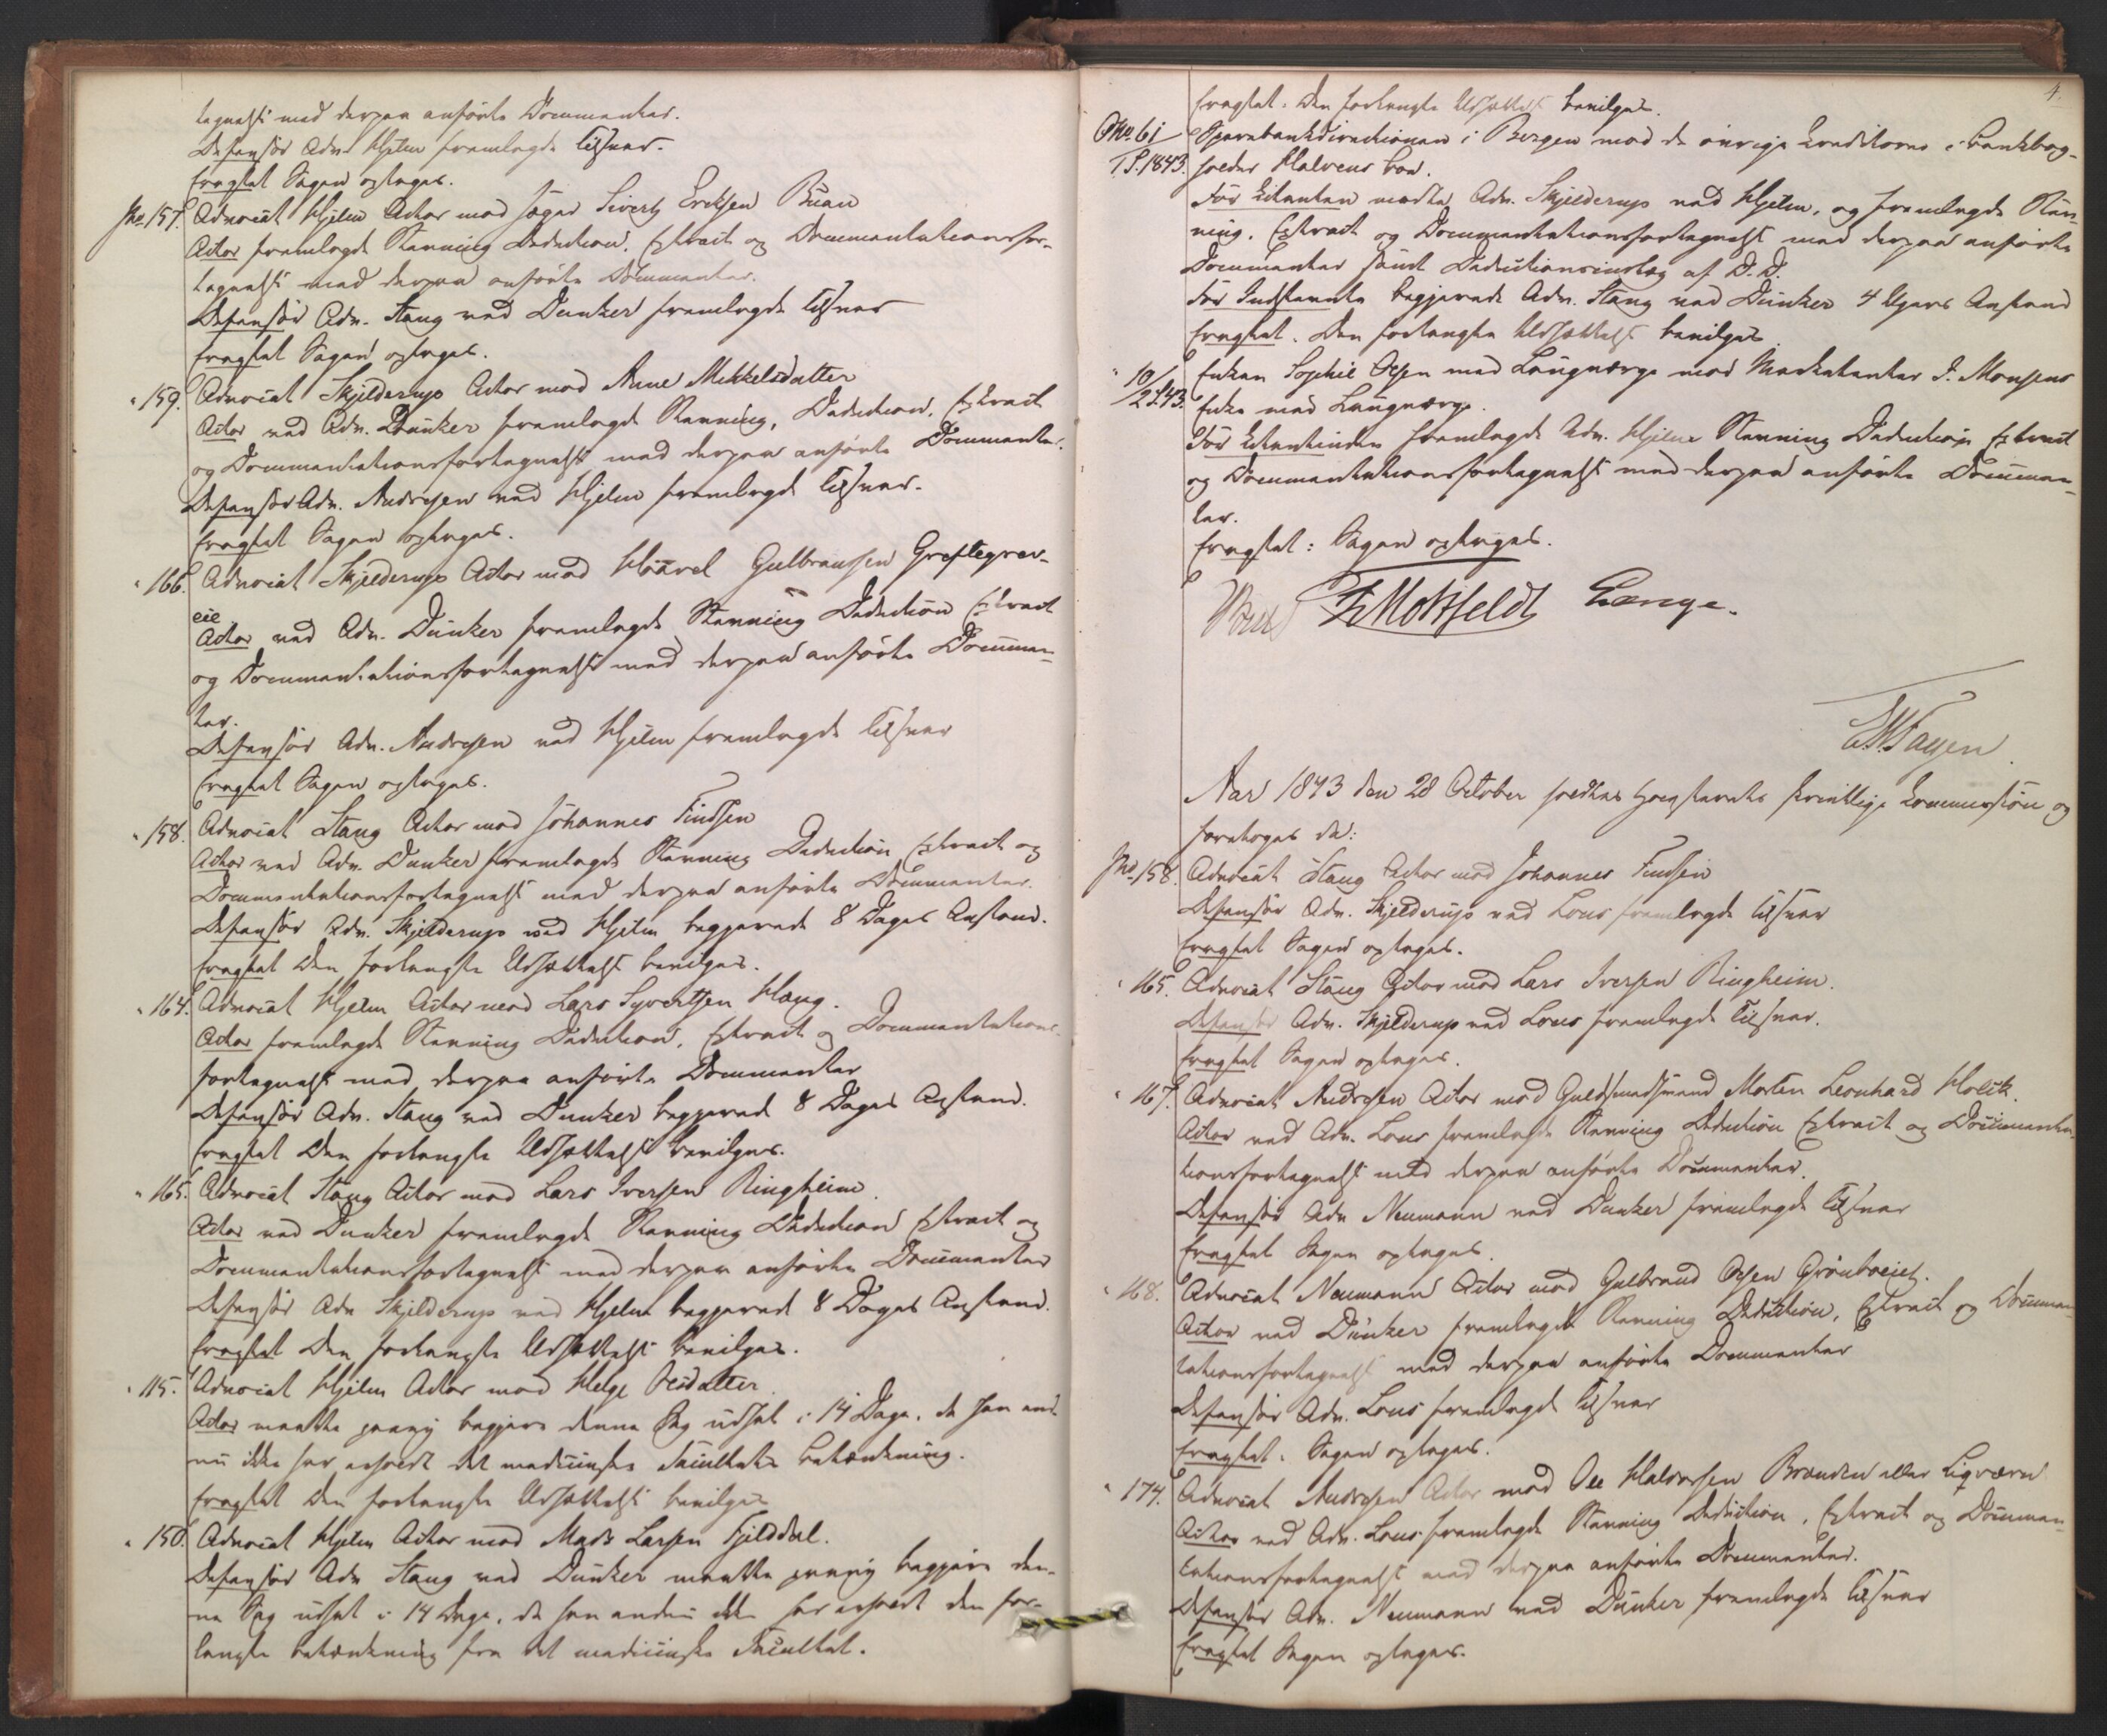 tegnelse med derpaa anførte Documenter.
Defensor Adv. Hjelm fremlagde Tilsvar.
Eragtet Sagen optages.
No 157. Advocat Hjelm Actor mod Sivert Ericksen Buan
Actor fremlagde Stævning Deduction, Extract og Documentationsfor-
tegnelse med derpaa anførte Documenter.
Defensor Adv. Stang ved Dunker fremlagde Tilsvar
Eragtet Sagen optages.
" 159. Advocat Skjelderup Actor mod Anne Mikkelsdatter
Actor ved Adv. Dunker fremlagde Stævning, Deduction, Extract
og Documentationsfortegnelse med derpaa anførte Documenter.
Defensor Adv. Andresen ved Hjelm fremlagde Tilsvar.
Eragtet Sagen optages.
" 166. Advocat Skjelderup Actor mod Haavel Gulbransen Greftegrev-
eie
Actor ved Adv. Dunker fremlagde Stævning Deduction Extract
og Documentationsfortegnelse med derpaa anførte Documen-
ter.
Defensor Adv. Andresen ved Hjelm fremlagde Tilsvar
Eragtet Sagen optages.
" 158. Advocat Stang Actor mod Johannes Findsen
Actor ved Adv. Dunker fremlagde Stævning Deduction Extract og
Documentationsfortegnelse med derpaa anførte Documenter.
Defensor Adv. Skjelderup ved Hjelm begjerede 8 Dages Anstand.
Eragtet Den forlangte Udsættelse bevilges.
" 164. Advocat Hjelm Actor mod Lars Syvertsen Haug.
Actor fremlagde Stævning Deduction, Extract og Documentations-
fortegnelse med derpaa anførte Documenter
Defensor Adv. Stang ved Dunker begjerede 8 Dages Anstand.
Eragtet Den forlangte Udsættelse bevilges.
" 165. Advocat Stang Actor mod Lars Iversen Ringheim
Actor ved Dunker fremlagde Stævning Deduction Extract og
Documentationsfortegnelse med derpaa anførte Documenter
Defensor Adv Skjelderup ved Hjelm begjerede 8 Dages Anstand.
Eragtet Den forlangte Udsættelse bevilges.
" 115. Advocat Hjelm Actor mod Helge Olsdatter
Actor maatte paany begjere denne Sag udsat i 14 Dage, da han end-
nu ikke har erholdt det medicinske Facultets Betænkning.
Eragtet Den forlangte Udsættelse bevilges
" 150. Advocat Hjelm Actor mod Mads Larsen Fjelddal.
Defensor Adv Stang ved Dunker maatte paany begjere den-
ne Sag udsat i 14 Dage, da han endnu ikke har erholdt den for-
langte Betænkning fra det medicinske Facultet.
4.
Eragtet. Den forlangte Udsættelse bevilges.
No 61 Sparebankdirectionen i Bergen mod de øvrige Creditorer i
1 S. 1843. Halvens Boe.
For Citanten mødte Adv. Skjelderup ved Hjelm, og fremlagde Stæv-
ning, Extract og Documentationsfortegnelse med derpaa anførte
Documenter samt Deductionsindlæg af D. D.
For Indstævnte begjerede Adv. Stang ved Dunker 4 Ugers Anstand
Eragtet. Den forlangte Udsættelse bevilges
" 10/ Enken Sophie Olsen med Laugværge mod Marketenter J. Monsens
2 S. 43. Enke med Laugværge.
For Citantinden fremlagde Adv. Hjelm Stævning Deduction Extract
og Documentationsfortegnelse med derpaa anførte Documen-
ter.
Eragtet: Sagen optages.
Motzfeldt Lange.
Fayen
Aar 1843 den 28 October holdtes Høiesterets skriftlige Commission og
foretoges da:
No 158. Advocat Stang Actor mod Johannes Findsen
Defensor Adv. Skjelderup ved Lous fremlagde Tilsvar
Eragtet Sagen optages.
" 165. Advocat Stang Actor mod Lars Iversen Ringheim.
Defensor Adv. Skjelderup ved Lous fremlagde Tilsvar.
Eragtet Sagen optages.
" 167. Advocat Andresen Actor mod Morten Leonhard Holck.
Actor ved Adv. Lous fremlagde Stævning Deduction Extract og Documenta-
tionsfortegnelse med derpaa anførte Documenter.
Defensor Adv Neumann ved Dunker fremlagde Tilsvar
Eragtet Sagen optages.
" 168. Advocat Neumann Actor mod Gulbrand Olsen Grønboeiet.
Actor ved Dunker fremlagde Stævning Deduction, Extract og Documen-
tationsfortegnelse med derpaa anførte Documenter
Defensor Adv. Lous fremlagde Tilsvar
Eragtet. Sagen optages.
" 174. Advocat Andresen Actor mod Ole Halvorsen Brænden eller Liqværn
Actor ved Adv. Lous fremlagde Stævning Deduction, Extract og Documen-
tationsfortegnelse med derpaa anførte Documenter.
Defensor Adv. Neumann ved Dunker fremlagde Tilsvar
Eragtet Sagen optages.